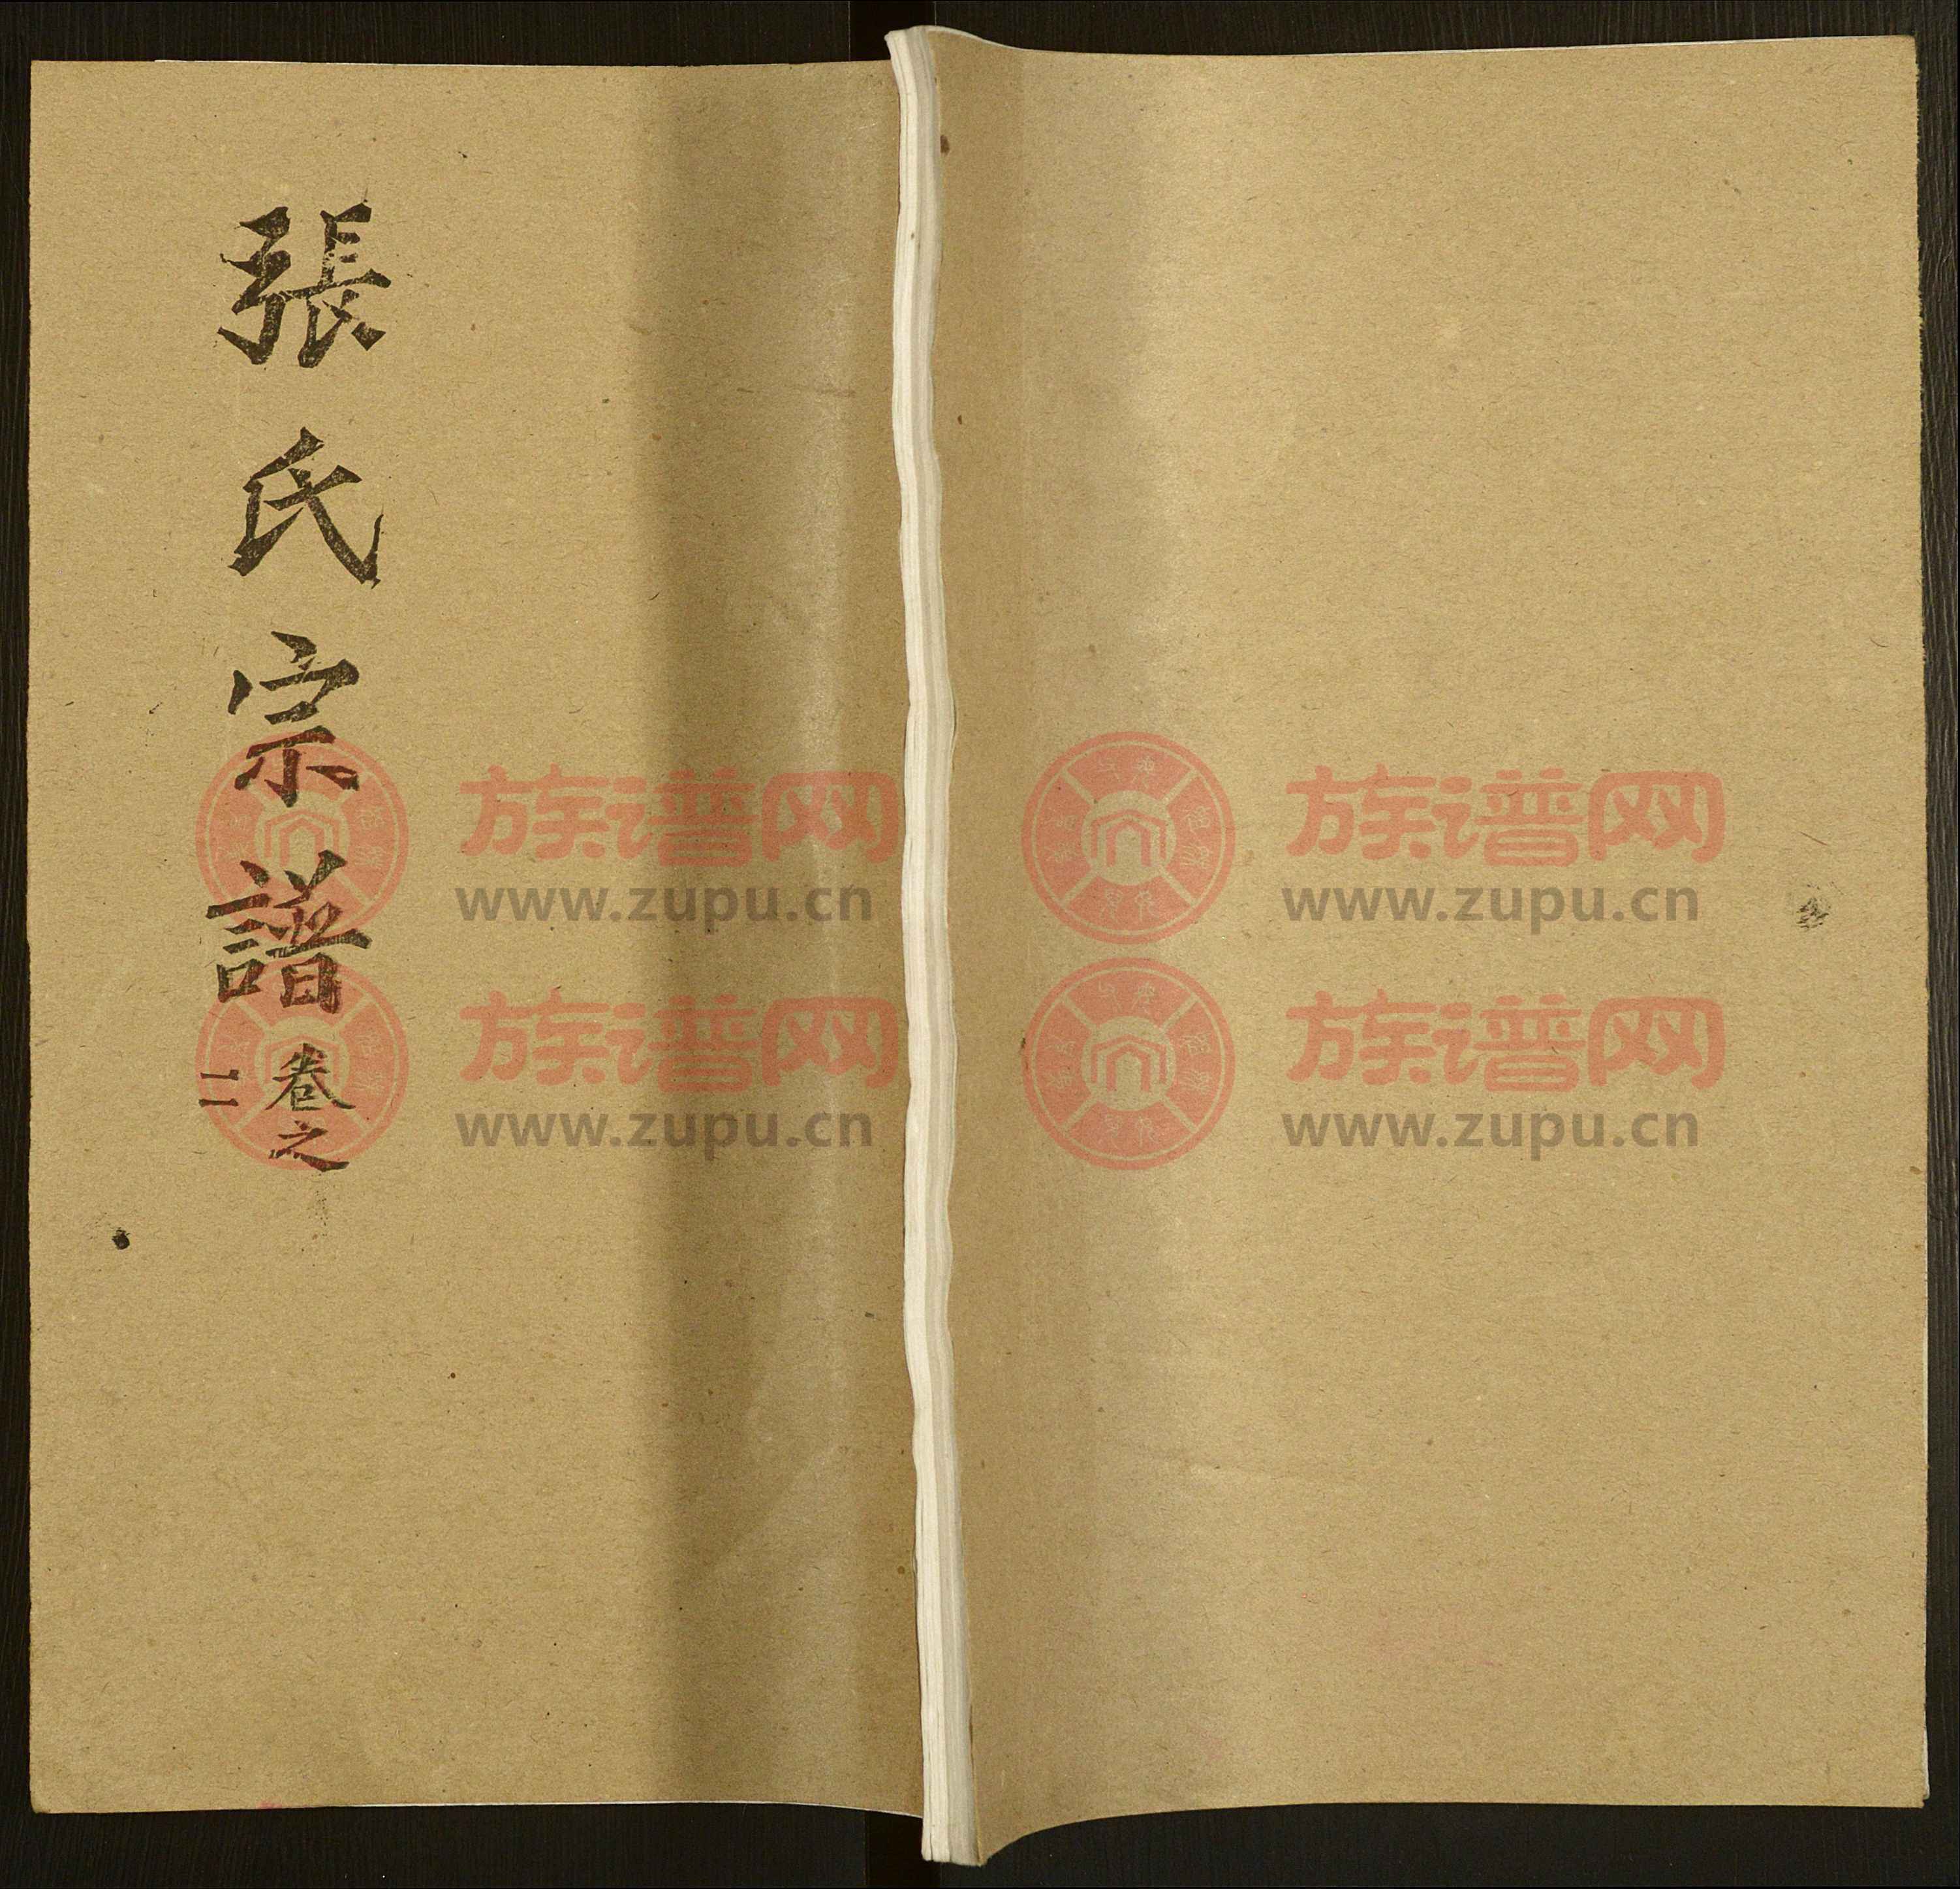 張氏宗譜
卷之
二
族谱网
www.zupu.cn
族谱网
www.zupu.cn
族谱网
www.zupu.cn
族谱网
www.zupu.cn